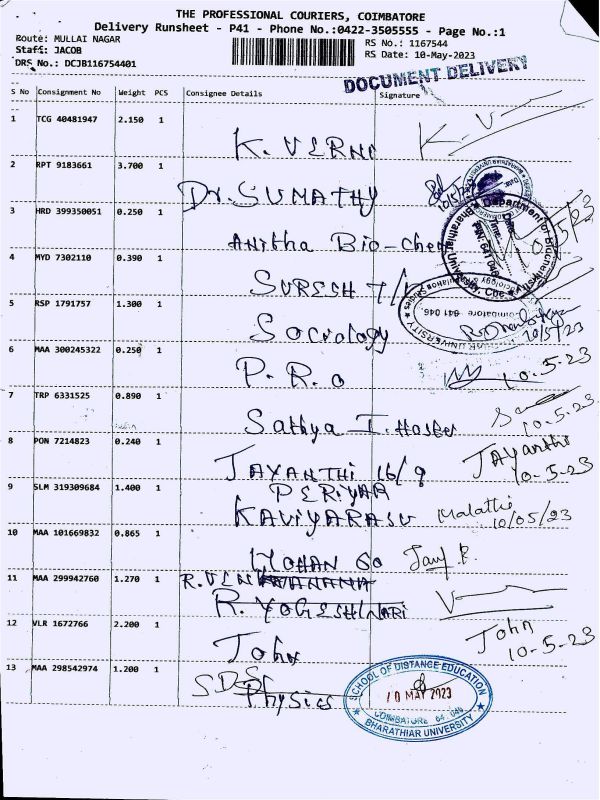 THE PROFESSIONAL COURIERS, COIMBATORE
Delivery Runsheet - P41 - Phone No.:0422-3505555 - Page No.:1
Route: MULLAI NAGAR
RS No.: 1167544
Staff: JACOB
RS Date: 10-May-2023
DRS No.: DCJB116754401
DOCUMENT DELIVERY
S No Consignment No Weight PCS Consignee Details Signature
1 TCG 40481947 2.150 1 K. VERNI K. V
2 RPT 9183661 3.700 1 Dr. SUMATHY
3 HRD 399350051 0.250 1 Anitha Bio-Chem 10/5/23
4 MYD 7302110 0.390 1 SURESH
5 RSP 1791757 1.300 1 Sociology 10/5/23
6 MAA 300245322 0.250 1 P. R. O 10.5-23
7 TRP 6331525 0.890 1 Sathya I. Hostel 10-5.23
8 PON 7214823 0.240 1 JAYANTHI 16/9 JAyanthi 10-5-23
9 SLM 319309684 1.400 1 PERIYAR KAVIYARASU Malathi 10/05/23
10 MAA 101669832 0.865 1 MOHAN
11 MAA 299942760 1.270 1 R. YOGESHWARI
12 VLR 1672766 2.200 1 John John 10-5-23
13 MAA 298542974 1.200 1 Physics
SCHOOL OF DISTANCE EDUCATION
10 MAY 2023
COIMBATORE 641 046
BHARATHIAR UNIVERSITY
Department of Biochemistry
Bharathiar University